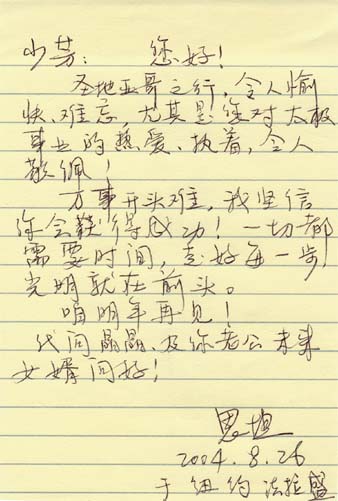 少芳： 您好！
圣地亚哥之行，令人愉
快、难忘，尤其是您对太极
事业的热爱、执着，令人
敬佩！
万事开头难，我坚信
你会获得成功！一切都
需要时间，走好每一步，
光明就在前头。
咱明年再见！
代问晶晶及你老公未来
女婿问好！
思坦
2004.8.26
于纽约法拉盛